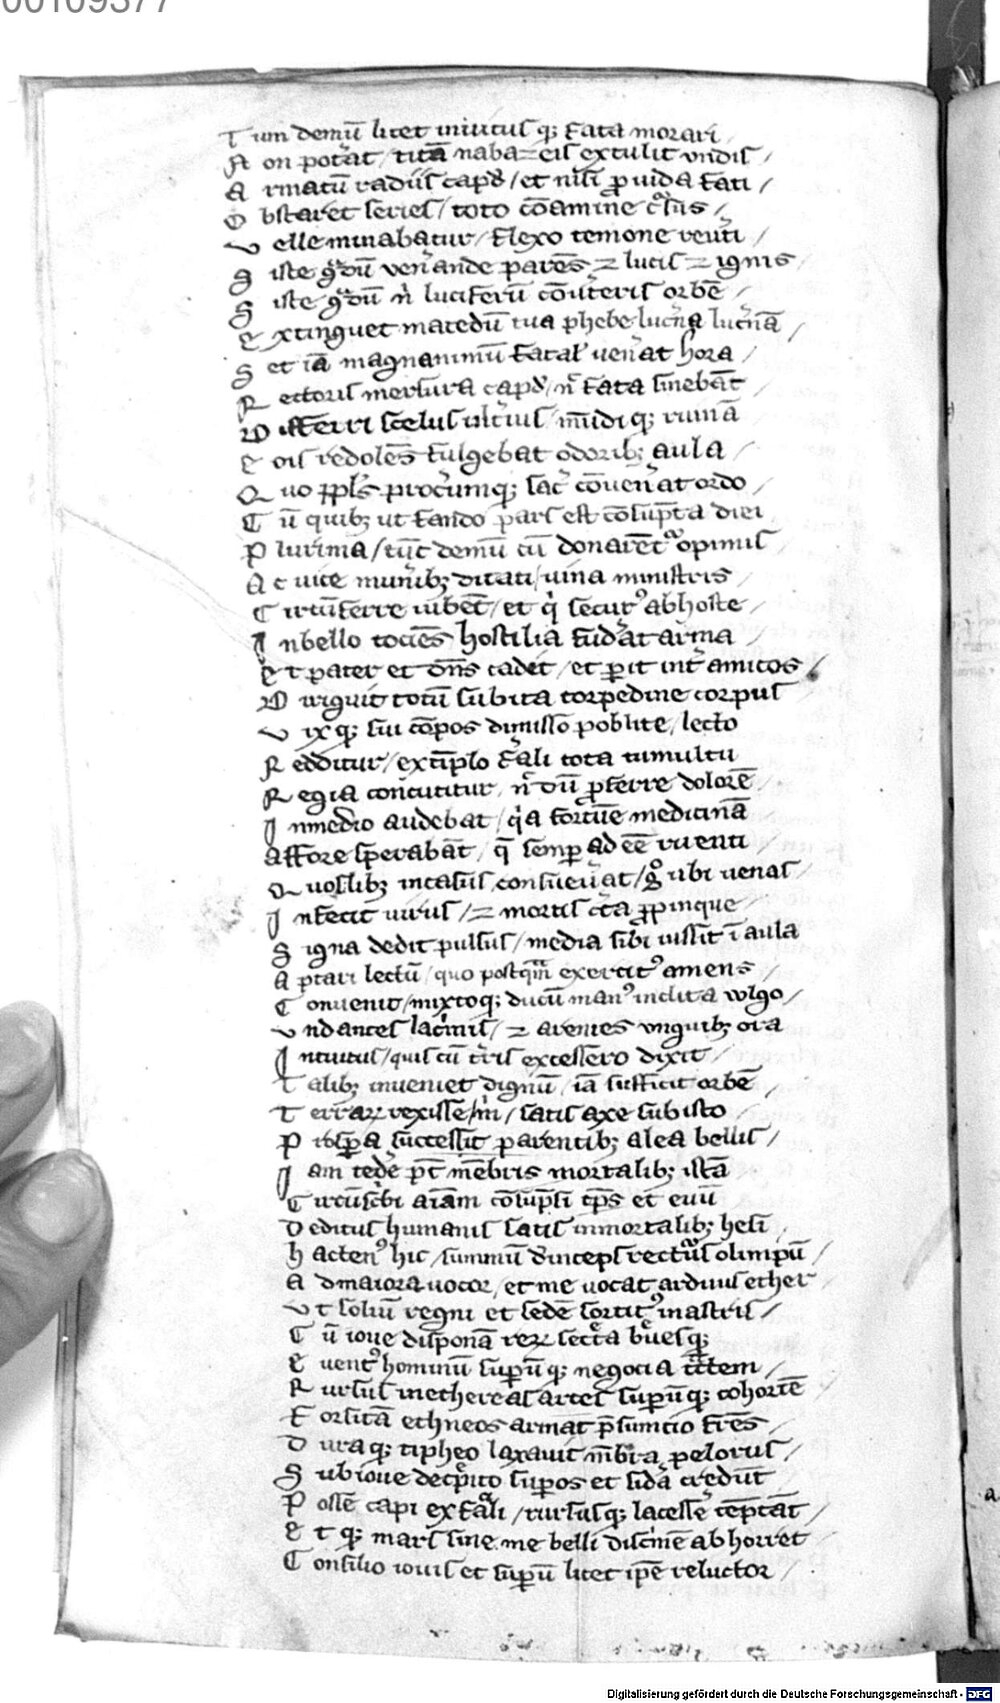 00109377
T um demū licet inuitus q; fata morari /
N on poterat / titā nabatheis extulit vndis /
A rmatū radiis capđ / et nisi ꝓuida fati /
O bstaret series / toto cōamine cͥsus /
V elle minabatur / flexo temone reuti /
S iste gͣdū ven̄ande parēs ⁊ lucis ⁊ ignis
S iste gͣdū ni luciferū cōuteris orbē /
E xtinguet macedū tua phebe lucna lucnā /
S et iā magnanimū fatał uenat hora /
R ectoris mersura capđ / nͨ fata sinebāt
D ifferri scelus ulcius / mūdi q; ruinā
E ois redolēs fulgebat odorib; aula /
Q uo ꝓplš procumq; sac cōuenat ordo /
C ū quib; ut fando pars est cōsūpta diei
P lurima / tūc demū cū donarēt opimis
A c uice munib; ditati / uina ministris /
C ircūferre iubēt / et qͥ securꝰ ab hoste /
I n bello tociēs hostilia fudat arma
E t pater et dn̄s cadet / et ꝑit int amicos /
D iriguit totū subita torpedine corpus
V ix q; sui cōpos dimisso poblite / lecto
R edditur / extīplo fali tota tumultu
R egia concutitur / nͨ dū ꝓferre dolorē
I n medio audebat / qͥa fortūe medicinā
A ffore sperabāt / q̄ semꝑ adeē ruenti
Q uoslib; in casus consueuat / g° ubi uenas /
I nfecit uirus / ⁊ mortis cta ꝓpinque
S igna dedit pulsus / media sibi iussit ī aula
A ptari lectū / quo postqͣm exercitꝰ amens /
C onuenit / mixtoq; ducū manꝰ inclita wlgo /
V ndantes lacͥmis / ⁊ arentes vnguib; ora
I ntuitus / quis cū tris excessero dixit /
T alib; inueniet dignū / iā sufficit orbē
T errarꝫ rexisse m̄ / satis axe sub isto
P rospa successit parentib; alea bellis /
I am tede pͨt mēbris mortalib; istā
C ircūscbi aīam cōsūpsi tp̄s et euū
D editus humanis satis inmortalib; hesi
H actenꝰ hic / summū deinceps recturus olimpū /
A d maiora uocor / et me uocat arduus ether
V t soliū regni et sedē sortitꝰ in astris /
C ū ioue disponā rerꝫ secta bͬuesq;
E uentꝰ hominū suꝑū q; negocia tͣctem
R ursus in ethereas artes suꝑū q; cohortē
F orsitā ethneos armat p̄sumtio fres
D uraq; tipheo laxauit mēbra pelorus /
S ub ioue decpito suꝑos et sida credūt
P osse capi ex fali / rursusq; lacesse tēptāt /
E t q; mars sine me belli discͥmē ab horret
C onsilio iouis et suꝑū licet ip̄e reluctor /
Digitalisierung gefördert durch die Deutsche Forschungsgemeinschaft - DFG